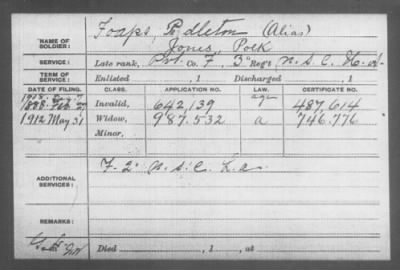 NAME OF SOLDIER: Foaps, Pedleton (Alias)
Jones, Polk
SERVICE: Late rank, Pvt. Co. F, 3" Reg't U.S.C. H. Art
TERM OF SERVICE: Enlisted , 1 Discharged , 1
DATE OF FILING. CLASS. APPLICATION NO. LAW. CERTIFICATE NO.
1888 Feb Invalid, 642,139 age 487,614
1912 May 31 Widow, 987.532 a 746.776
Minor,
ADDITIONAL SERVICES: F-2" U.S.C. L.a.
REMARKS:
Died , 1 , at